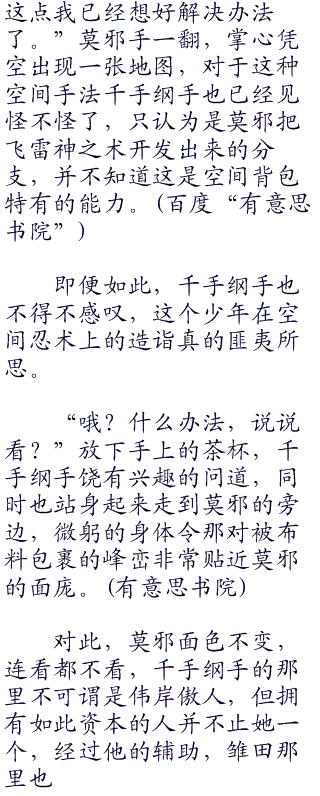 这点我已经想好解决办法
了。”莫邪手一翻，掌心凭
空出现一张地图，对于这种
空间手法千手纲手也已经见
怪不怪了，只认为是莫邪把
飞雷神之术开发出来的分
支，并不知道这是空间背包
特有的能力。(百度“有意思
书院”)
即便如此，千手纲手也
不得不感叹，这个少年在空
间忍术上的造诣真的匪夷所
思。
“哦？什么办法，说说
看？”放下手上的茶杯，千
手纲手饶有兴趣的问道，同
时也站身起来走到莫邪的旁
边，微躬的身体令那对被布
料包裹的峰峦非常贴近莫邪
的面庞。(有意思书院)
对此，莫邪面色不变，
连看都不看，千手纲手的那
里不可谓是伟岸傲人，但拥
有如此资本的人并不止她一
个，经过他的辅助，雏田那
里也